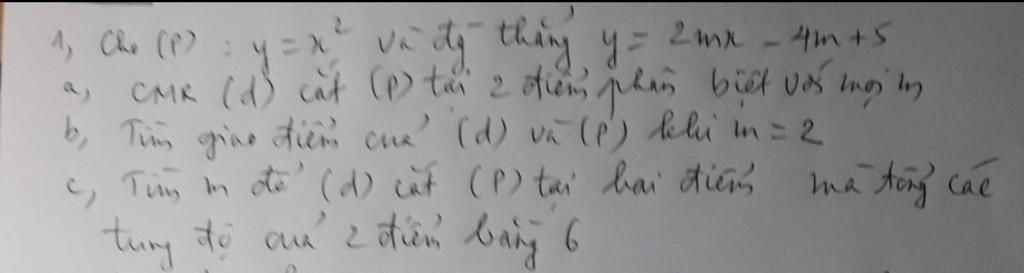 1, Cho (P) : y = x² và đg thẳng y = 2mx - 4m + 5
a, CMR (d) cắt (P) tại 2 điểm phân biệt với mọi m
b, Tìm giao điểm của (d) và (P) khi m = 2
c, Tìm m để (d) cắt (P) tại hai điểm mà tổng các
tung độ của 2 điểm bằng 6